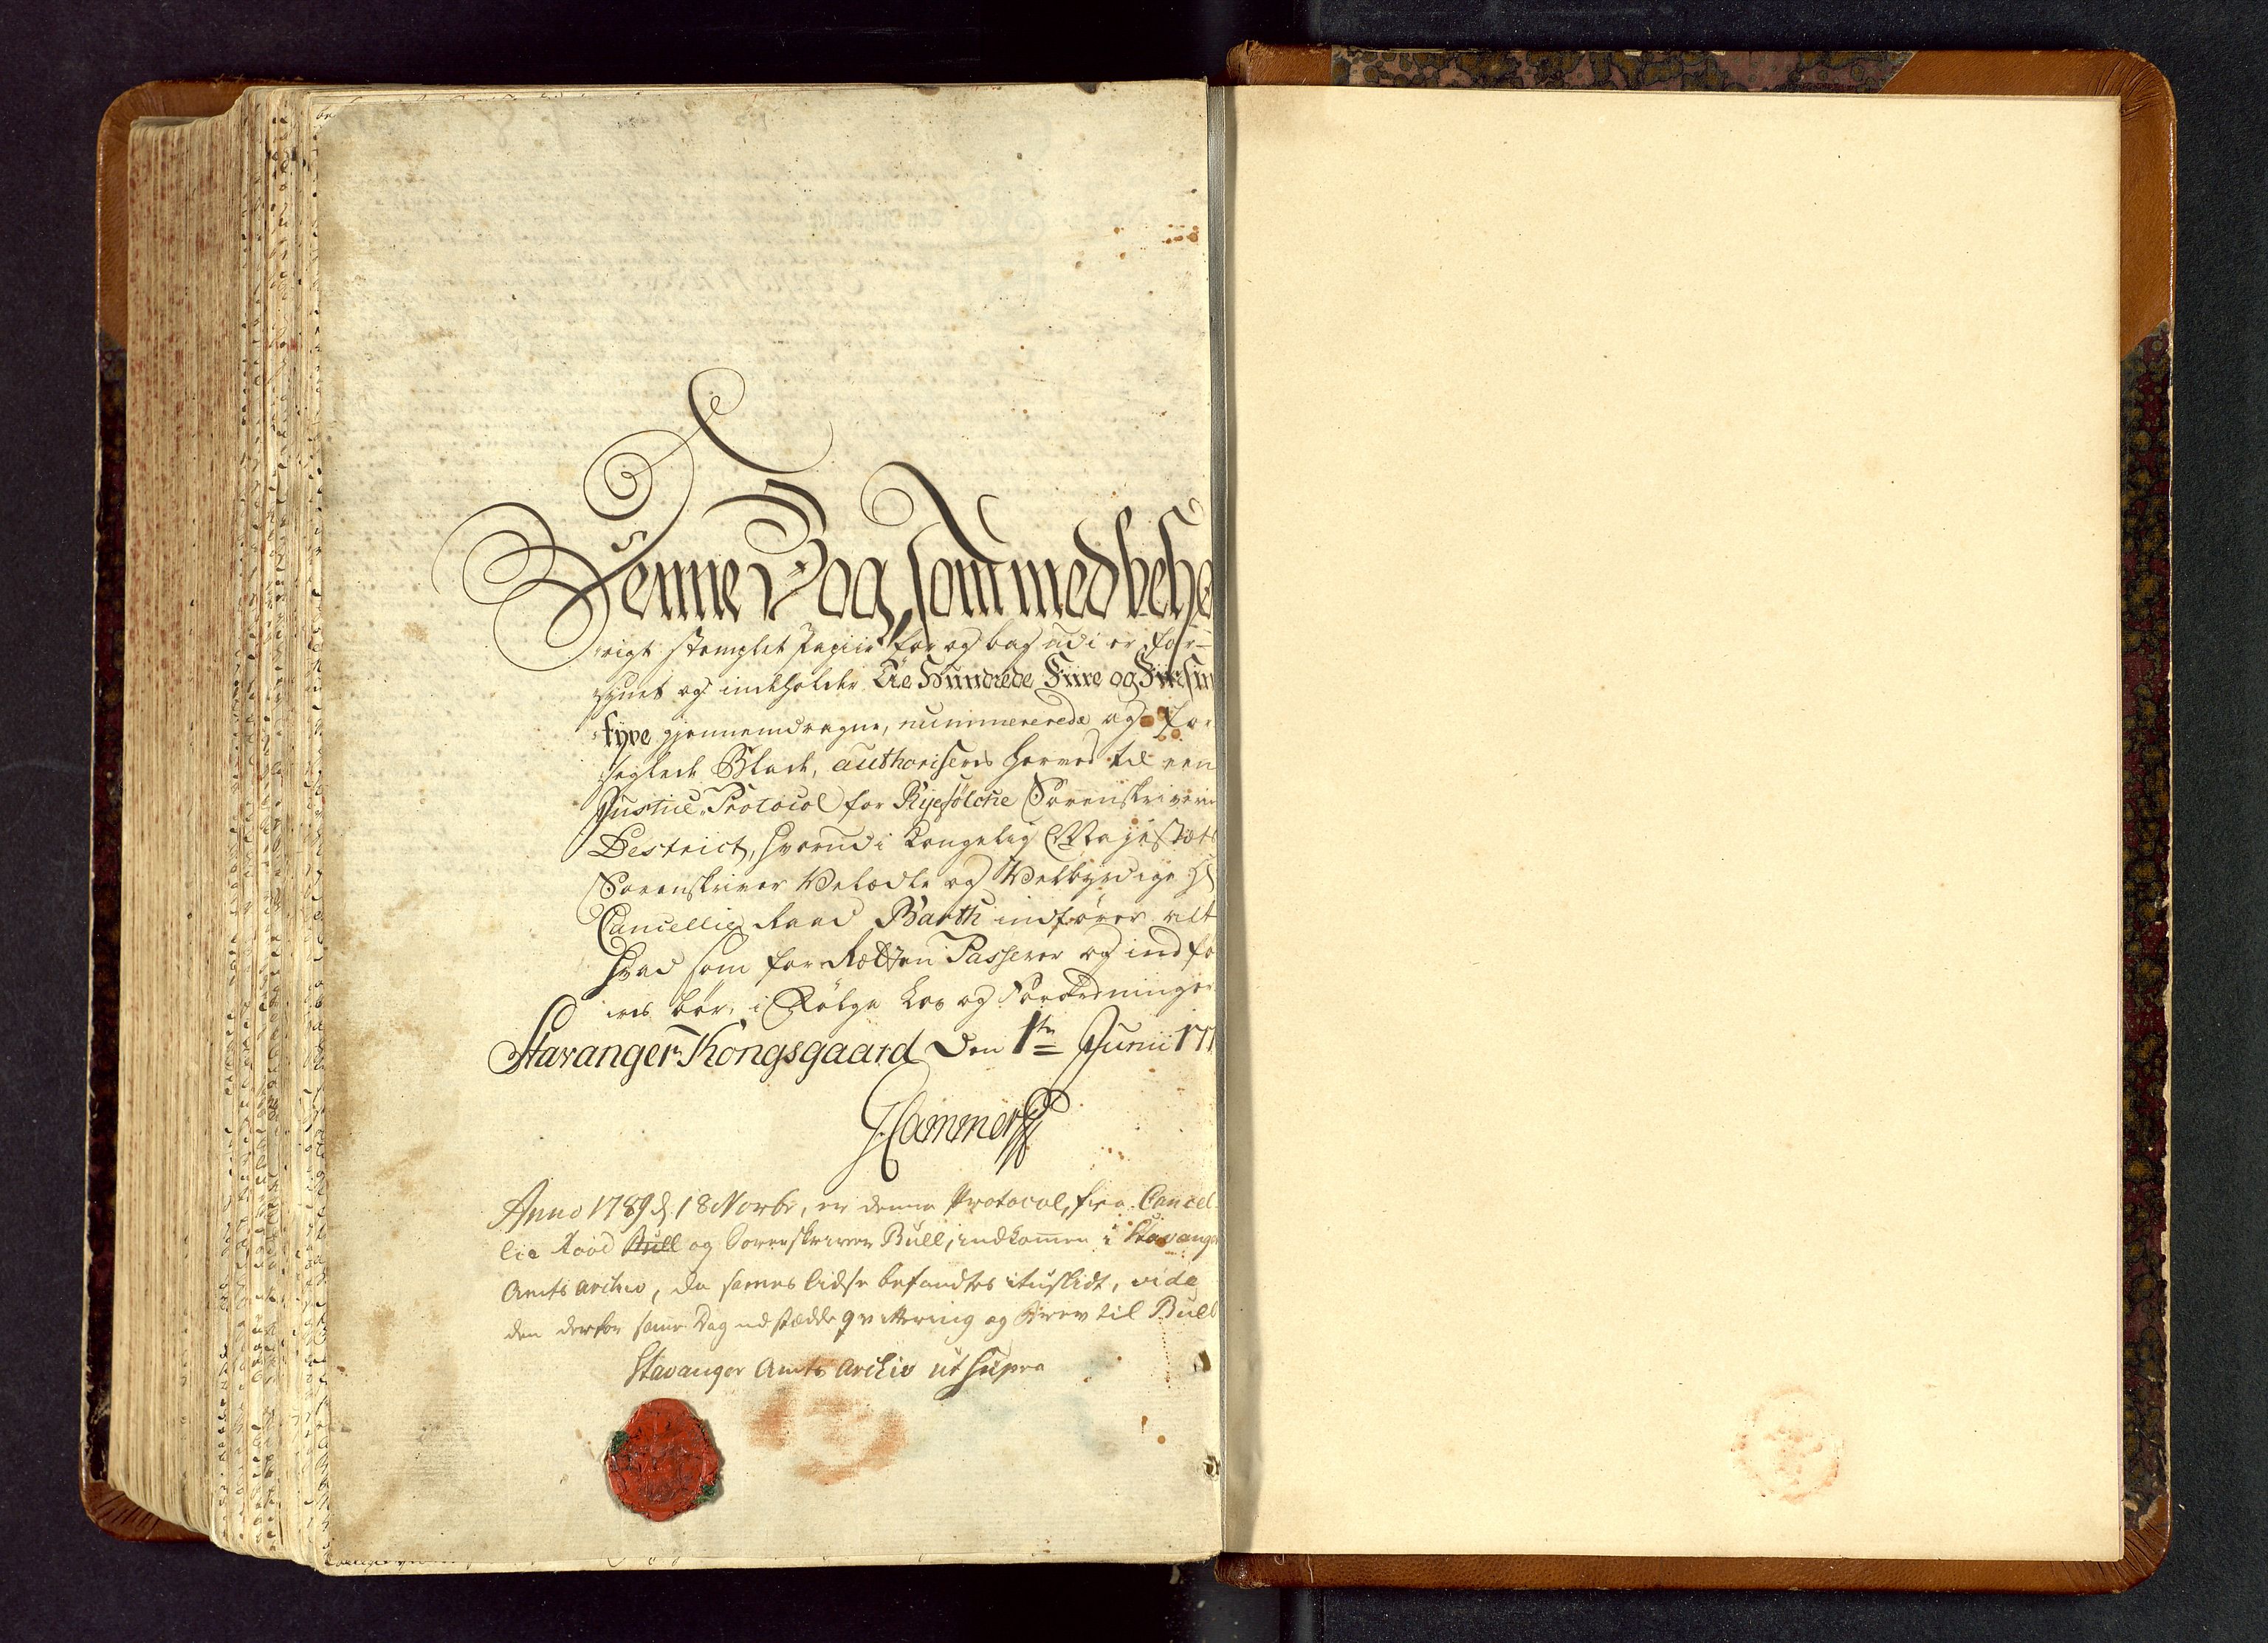 Denne Bog, som med behø
rigt stemplet Papiir for og bag udi er for-
synet og indeholder Tie Hundrede Fiire og Firsin
tyve gjennemdragne, nummererede og for
seglede Blade, authoriseres herved til een
Justice-Protocol for Ryefølche Sorenskriverie
Destrict, hvorudi Kongelig Mayestæts
Sorenskriver Velædle og Velbyrdige Hr
Cancellie Raad Barth indfører alt
hvad som for Retten Passerer og indfø
res bør, i Følge Lov og Forordninger
Stavanger Kongsgaard Den 1te Junii 177
Hammer
Anno 1789 d. 18 Novbr, er denne Protocol, fra Cancel-
lie Raad Bull og Sorenskriver Bull, indkommen i Stavanger
Amts Archiv, da sammes Lidse befandtes itusliidt, vide
den derfor samme Dag udstædde Qvittering og Brev til Bull
Stavanger Amts Archiv ut supra